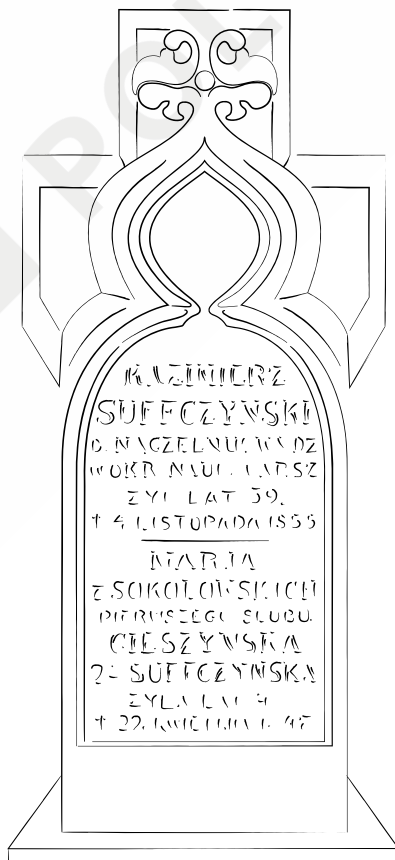 KAZIMIERZ
SUFFCZYŃSKI
B. NACZELNIK
W OKR NAUK. WARSZ
ŻYŁ LAT 59.
† 4 LISTOPADA
MARJA
z SOKOŁOWSKICH
PIERWSZEGO ŚLUBU
CIESZYŃSKA
2º SUFFCZYŃSKA
ŻYŁA LAT
† 22. KWIETNIA
POL